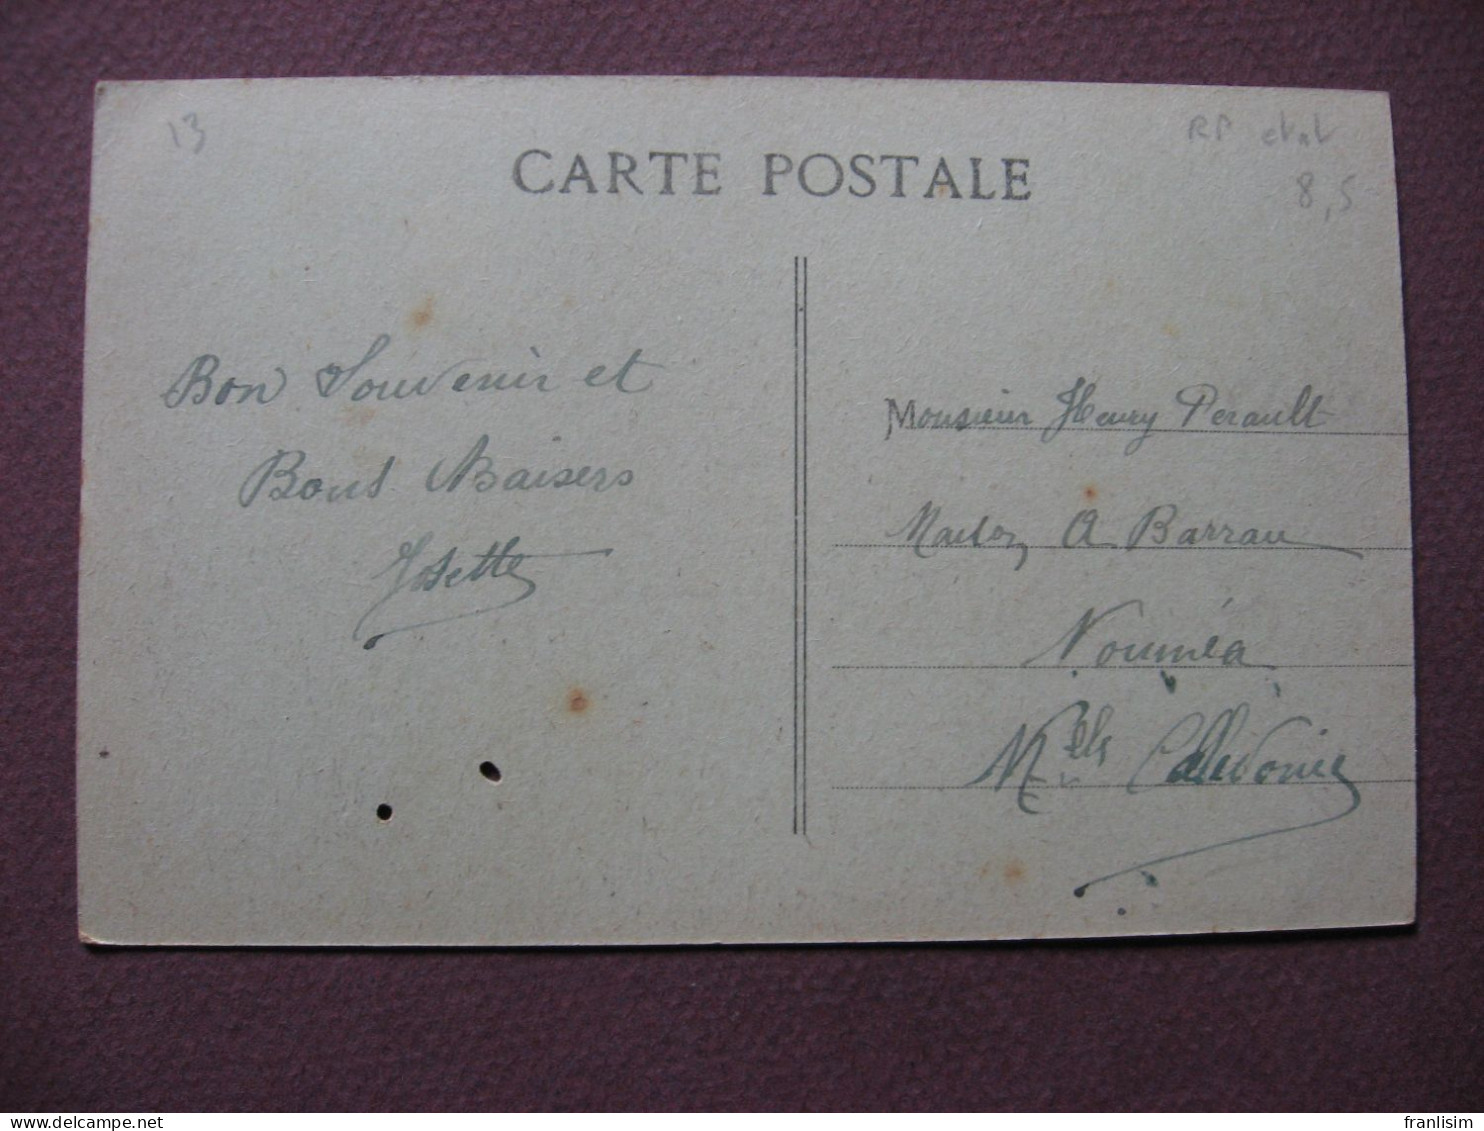 13
RP etat
8,5
CARTE POSTALE
Bon Souvenir et
Bons Baisers
Josette
Monsieur Henry Perault
Maison A Barrau
Nouméa
Nelle Calédonie
www.delcampe.net
franlisim